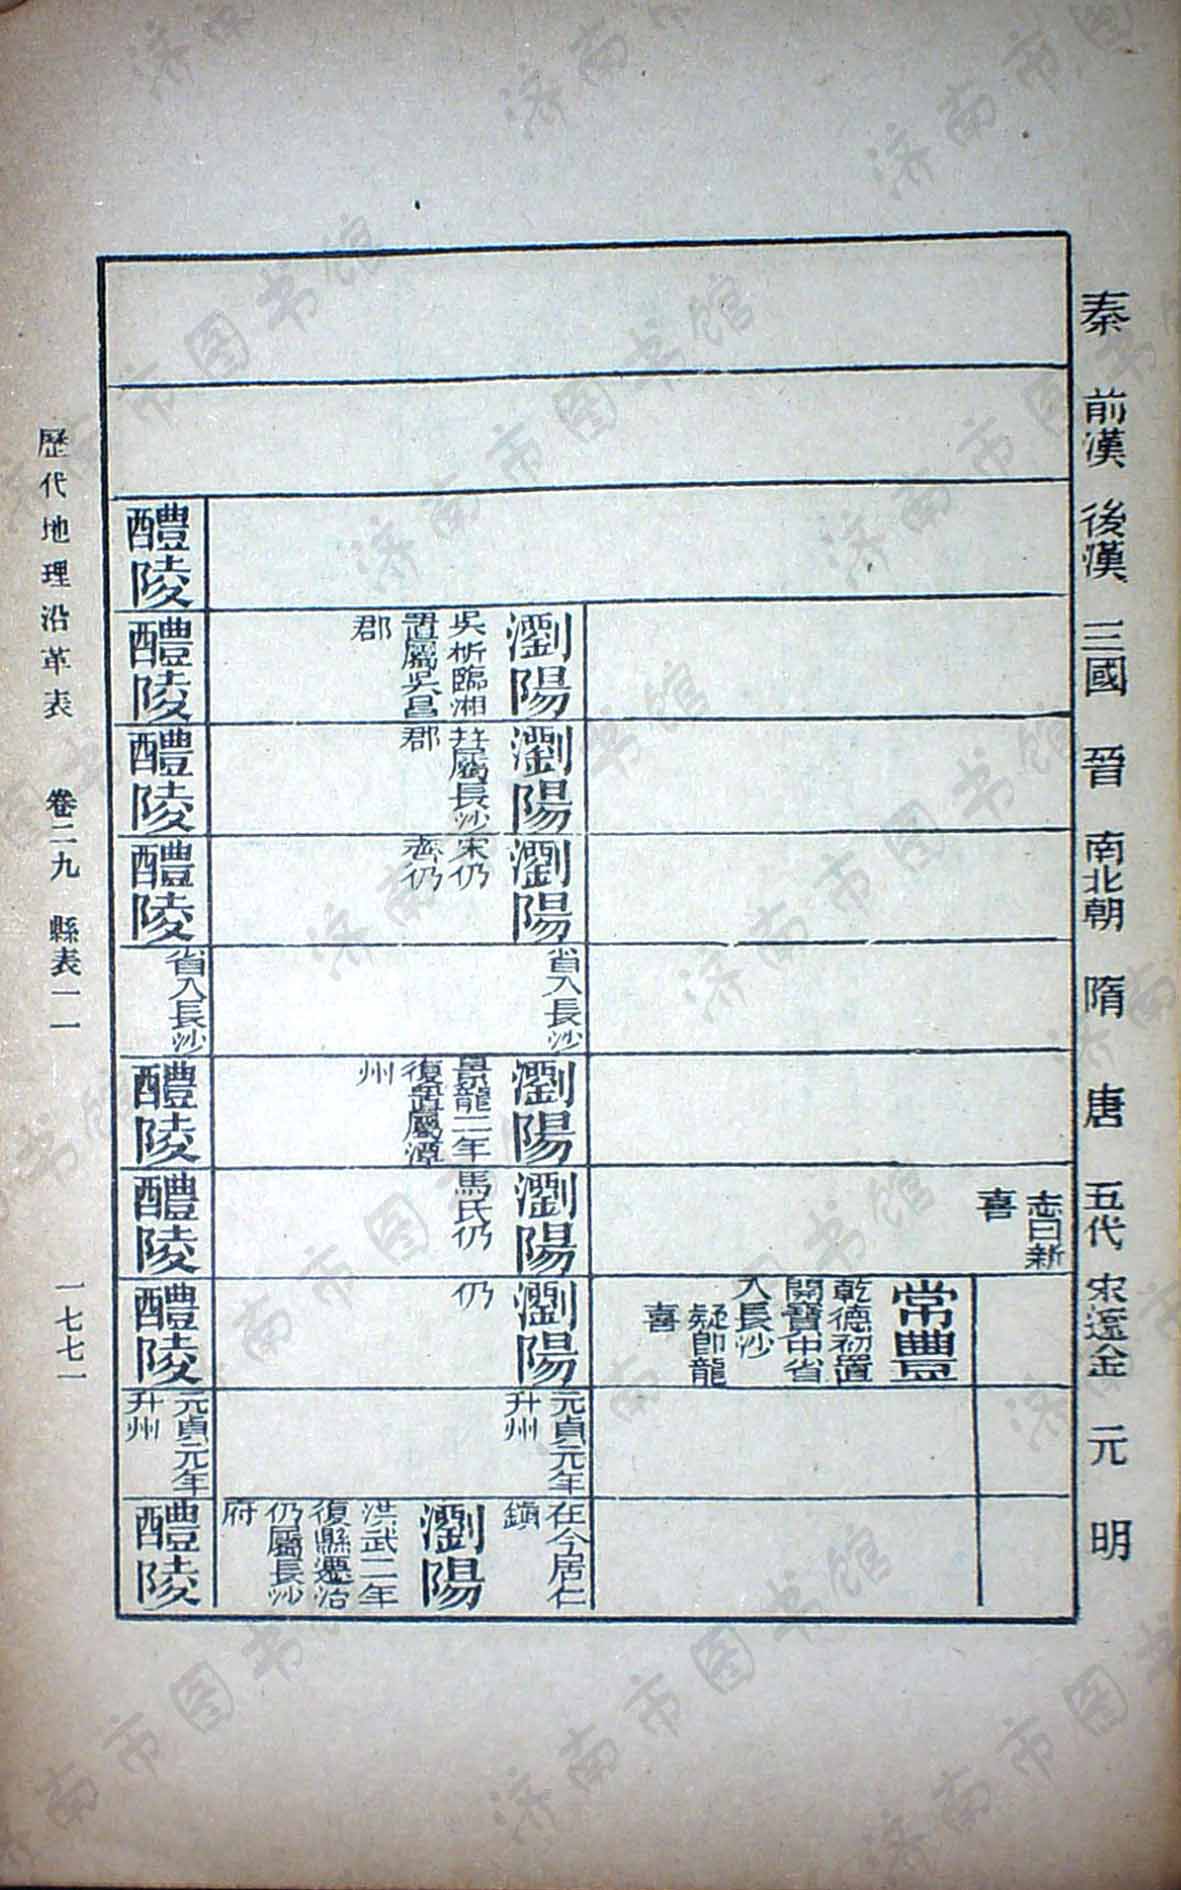 秦
前漢
後漢
三國
晉
南北朝
隋
唐
五代
宋遼金
元
明
志曰新
喜
常豐
乾德初置
開寶中省
入長沙
疑卽龍
喜
瀏陽
吳析臨湘
置屬吳昌
郡
瀏陽
屬長沙
郡
瀏陽
宋仍
齊仍
省入長沙
瀏陽
景龍二年
復置屬潭
州
瀏陽
馬氏仍
瀏陽
仍
元貞元年
升州
在今居仁
鎮
瀏陽
洪武二年
復縣遷治
仍屬長沙
府
醴陵
醴陵
醴陵
醴陵
省入長沙
醴陵
醴陵
醴陵
元貞元年
升州
醴陵
歷代地理沿革表 卷二九 縣表一一 一七七一
济南市图书馆